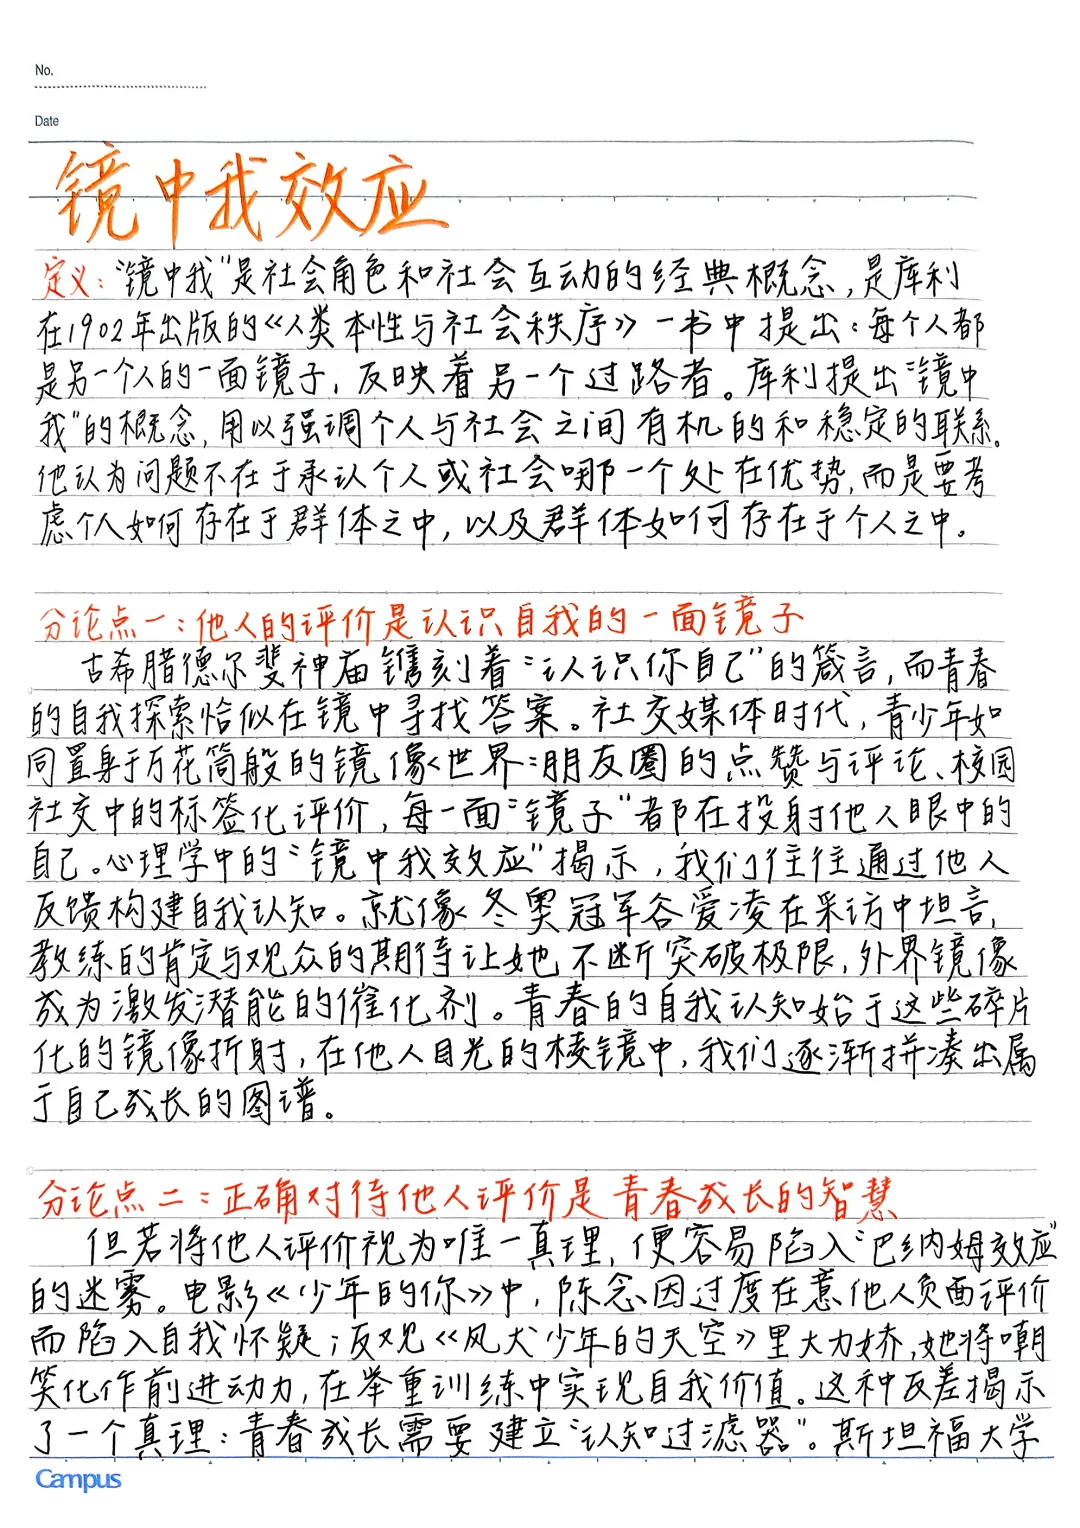 No.
Date
镜中我效应
定义：“镜中我”是社会角色和社会互动的经典概念，是库利
在1902年出版的《人类本性与社会秩序》一书中提出：每个人都
是另一个人的一面镜子，反映着另一个过路者。库利提出“镜中
我”的概念，用以强调个人与社会之间有机的和稳定的联系。
他认为问题不在于承认个人或社会哪一个处在优势，而是要考
虑个人如何存在于群体之中，以及群体如何存在于个人之中。
分论点一：他人的评价是认识自我的一面镜子
古希腊德尔斐神庙镌刻着“认识你自己”的箴言，而青春
的自我探索恰似在镜中寻找答案。社交媒体时代，青少年如
同置身于万花筒般的镜像世界：朋友圈的点赞与评论、校园
社交中的标签化评价，每一面“镜子”都在投射他人眼中的
自己。心理学中的“镜中我效应”揭示，我们往往通过他人
反馈构建自我认知。就像冬奥冠军谷爱凌在采访中坦言，
教练的肯定与观众的期待让她不断突破极限，外界镜像
成为激发潜能的催化剂。青春的自我认知始于这些碎片
化的镜像折射，在他人目光的棱镜中，我们逐渐拼凑出属
于自己成长的图谱。
分论点二：正确对待他人评价是青春成长的智慧
但若将他人评价视为唯一真理，便容易陷入“巴纳姆效应”
的迷雾。电影《少年的你》中，陈念因过度在意他人负面评价
而陷入自我怀疑；反观《风犬少年的天空》里大力娇，她将嘲
笑化作前进动力，在举重训练中实现自我价值。这种反差揭示
了一个真理：青春成长需要建立“认知过滤器”。斯坦福大学
Campus